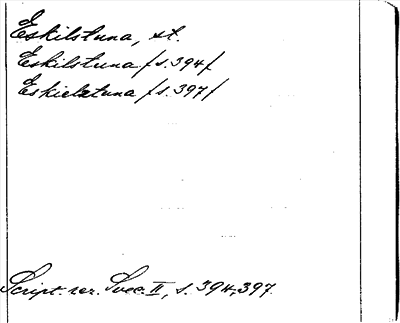 Eskilstuna, st.
Eskilstuna /s. 394/
Eskielstuna /s. 397/
Script. rer. Svec. II, s. 394, 397